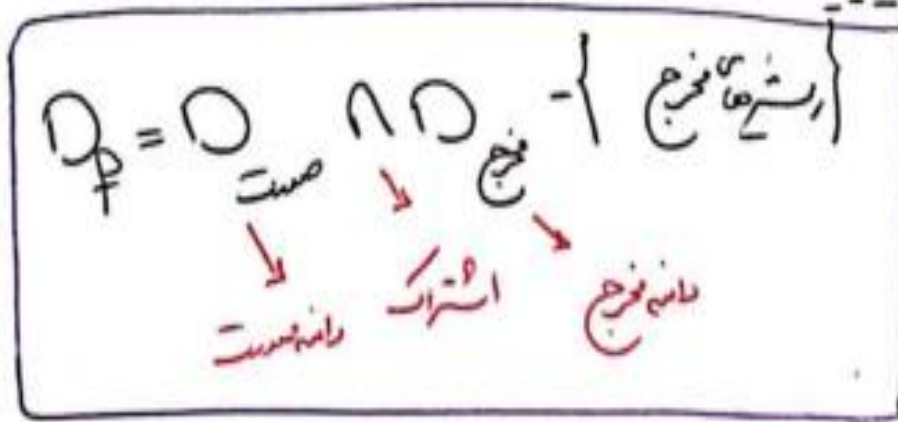 D_f = D صورت ∩ D مخرج - { ریشه‌های مخرج }
دامنه صورت اشتراک دامنه مخرج